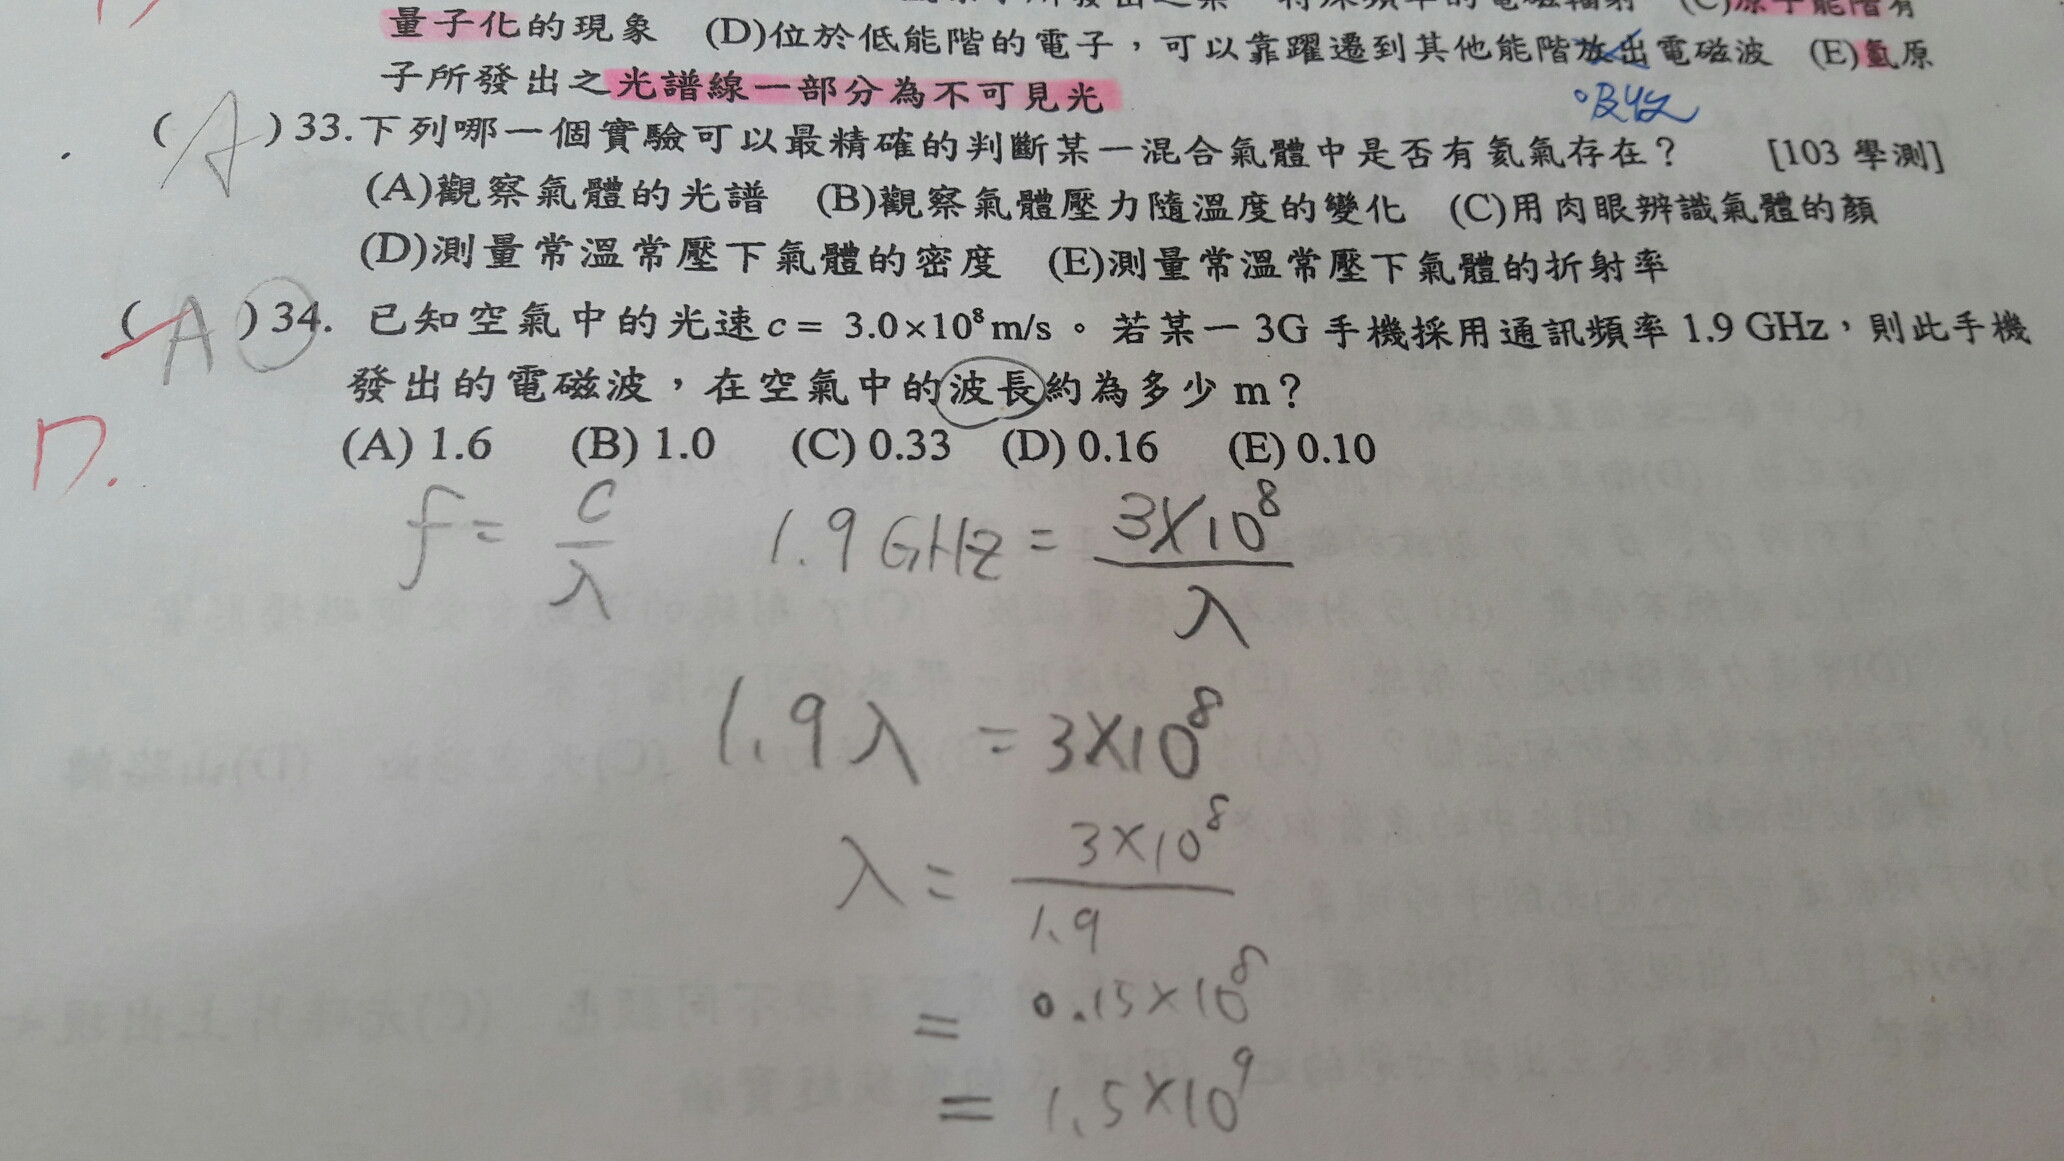 量子化的現象 (D)位於低能階的電子，可以靠躍遷到其他能階放出電磁波 (E)氫原
吸收
子所發出之光譜線一部分為不可見光
( A )33.下列哪一個實驗可以最精確的判斷某一混合氣體中是否有氦氣存在？ [103 學測]
(A)觀察氣體的光譜 (B)觀察氣體壓力隨溫度的變化 (C)用肉眼辨識氣體的顏
(D)測量常溫常壓下氣體的密度 (E)測量常溫常壓下氣體的折射率
( A )34. 已知空氣中的光速c = 3.0×10⁸m/s。若某一3G手機採用通訊頻率1.9 GHz，則此手機
發出的電磁波，在空氣中的波長約為多少 m？
D.
(A) 1.6 (B) 1.0 (C) 0.33 (D) 0.16 (E) 0.10
f = c/λ 1.9 GHz = 3×10⁸/λ
1.9λ = 3×10⁸
λ = 3×10⁸/1.9
= 0.15×10⁸
= 1.5×10⁹